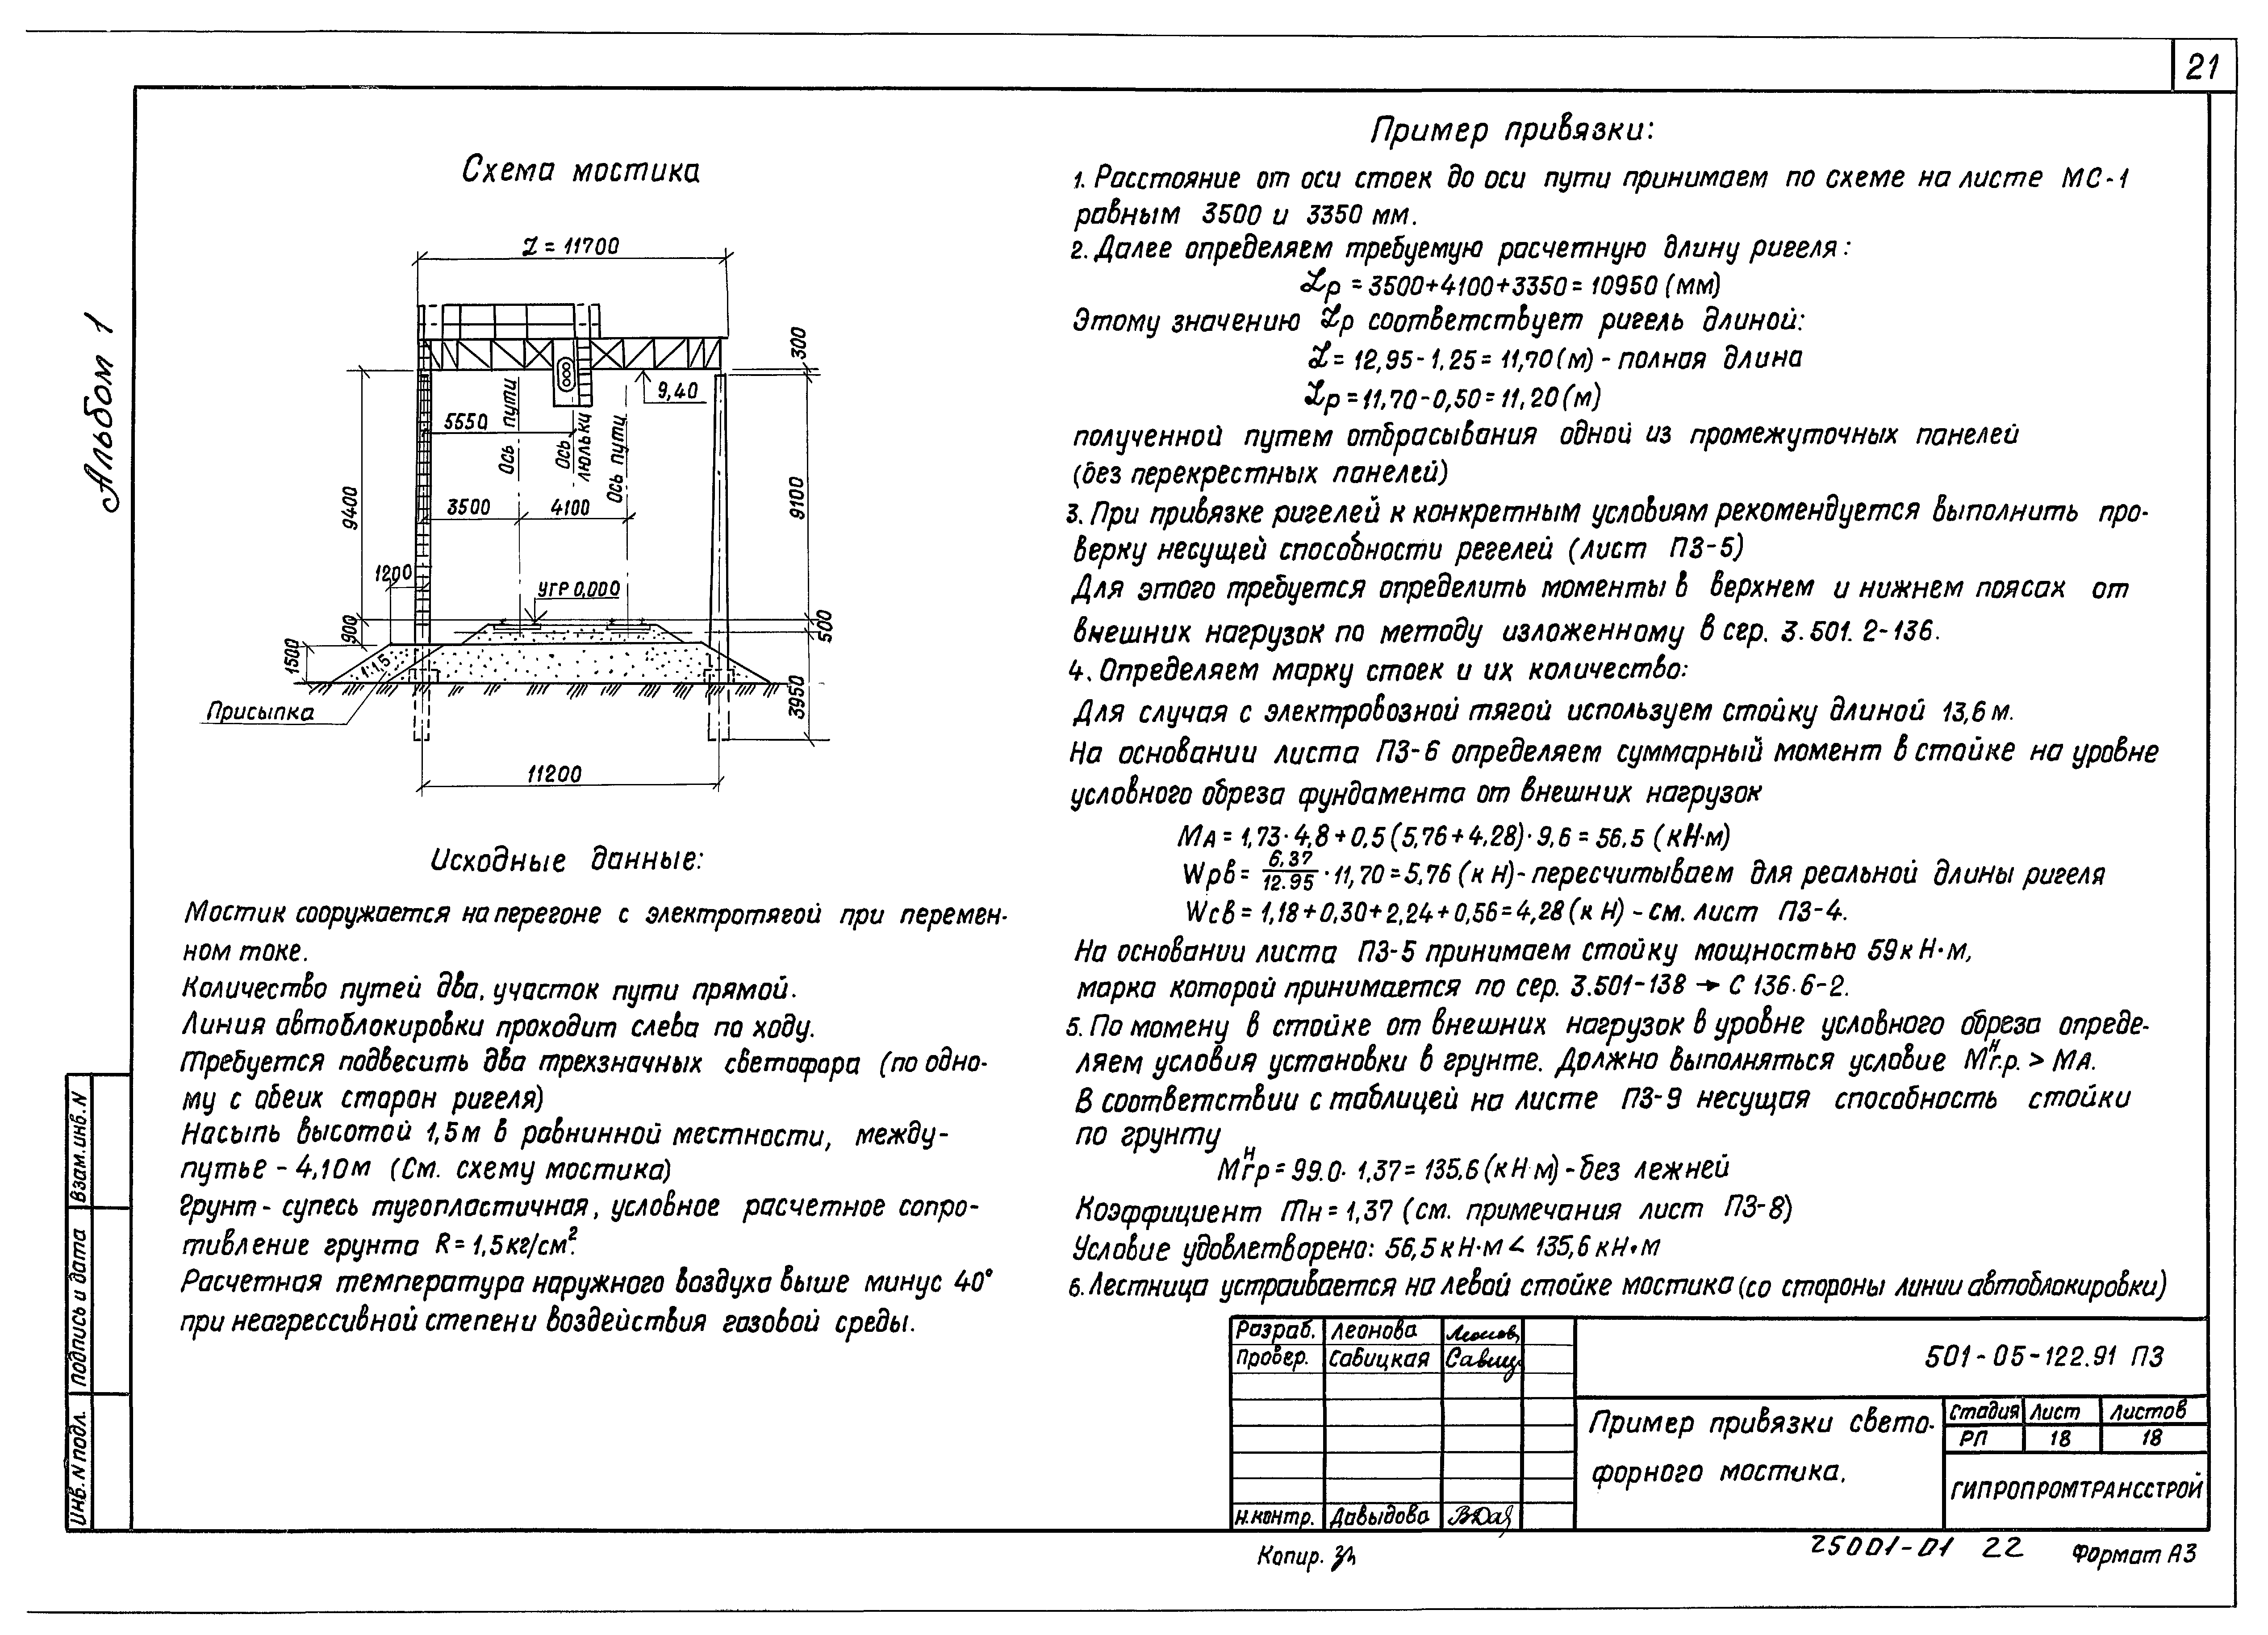 21
Альбом 1
Схема мостика
L = 11700
300
9,40
5550
Ось пути
Ось люльки
Ось пути
9400
9100
3500
4100
1200
УГР 0,000
900
500
1500
1:1,5
3950
Присыпка
11200
Исходные данные:
Мостик сооружается на перегоне с электротягой при перемен-
ном токе.
Количество путей два, участок пути прямой.
Линия автоблокировки проходит слева по ходу.
Требуется подвесить два трехзначных светофора (по одно-
му с обеих сторон ригеля)
Насыпь высотой 1,5м в равнинной местности, между-
путье - 4,10м (См. схему мостика)
Грунт - супесь тугопластичная, условное расчетное сопро-
тивление грунта R = 1,5кг/см².
Расчетная температура наружного воздуха выше минус 40°
при неагрессивной степени воздействия газовой среды.
Пример привязки:
1. Расстояние от оси стоек до оси пути принимаем по схеме на листе МС-1
равным 3500 и 3350 мм.
2. Далее определяем требуемую расчетную длину ригеля:
Lр = 3500+4100+3350 = 10950 (мм)
Этому значению Lр соответствует ригель длиной:
L = 12,95-1,25 = 11,70(м) - полная длина
Lр = 11,70-0,50 = 11,20(м)
полученной путем отбрасывания одной из промежуточных панелей
(без перекрестных панелей)
3. При привязке ригелей к конкретным условиям рекомендуется выполнить про-
верку несущей способности регелей (лист ПЗ-5)
Для этого требуется определить моменты в верхнем и нижнем поясах от
внешних нагрузок по методу изложенному в сер. 3.501.2-136.
4. Определяем марку стоек и их количество:
Для случая с электровозной тягой используем стойку длиной 13,6 м.
На основании листа ПЗ-6 определяем суммарный момент в стойке на уровне
условного обреза фундамента от внешних нагрузок
МА = 1,73·4,8+0,5(5,76+4,28)·9,6 = 56,5 (кН·м)
Wрв = 6,37/12.95 · 11,70 = 5,76 (кН) - пересчитываем для реальной длины ригеля
Wсв = 1,18+0,30+2,24+0,56 = 4,28(кН) - см. лист ПЗ-4.
На основании листа ПЗ-5 принимаем стойку мощностью 59кН·м,
марка которой принимается по сер. 3.501-138 → С 136.6-2.
5. По момену в стойке от внешних нагрузок в уровне условного обреза опреде-
ляем условия установки в грунте. Должно выполняться условие Мᴴг.р. > МА.
В соответствии с таблицей на листе ПЗ-9 несущая способность стойки
по грунту
Мᴴгр = 99.0· 1,37 = 135,6(кН м) - без лежней
Коэффициент mн = 1,37 (см. примечания лист ПЗ-8)
Условие удовлетворено: 56,5 кН·м < 135,6 кН·м
6. Лестница устраивается на левой стойке мостика (со стороны линии автоблокировки)
Разраб. Леонова Леонов
Провер. Савицкая Савиц
Н.контр. Давыдова
501-05-122.91 ПЗ
Пример привязки свето-
форного мостика.
Стадия Лист Листов
РП 18 18
ГИПРОПРОМТРАНССТРОЙ
Взам.инв.N
Подпись и дата
Инв.N подл.
Копир.
25001-01 22
Формат А3